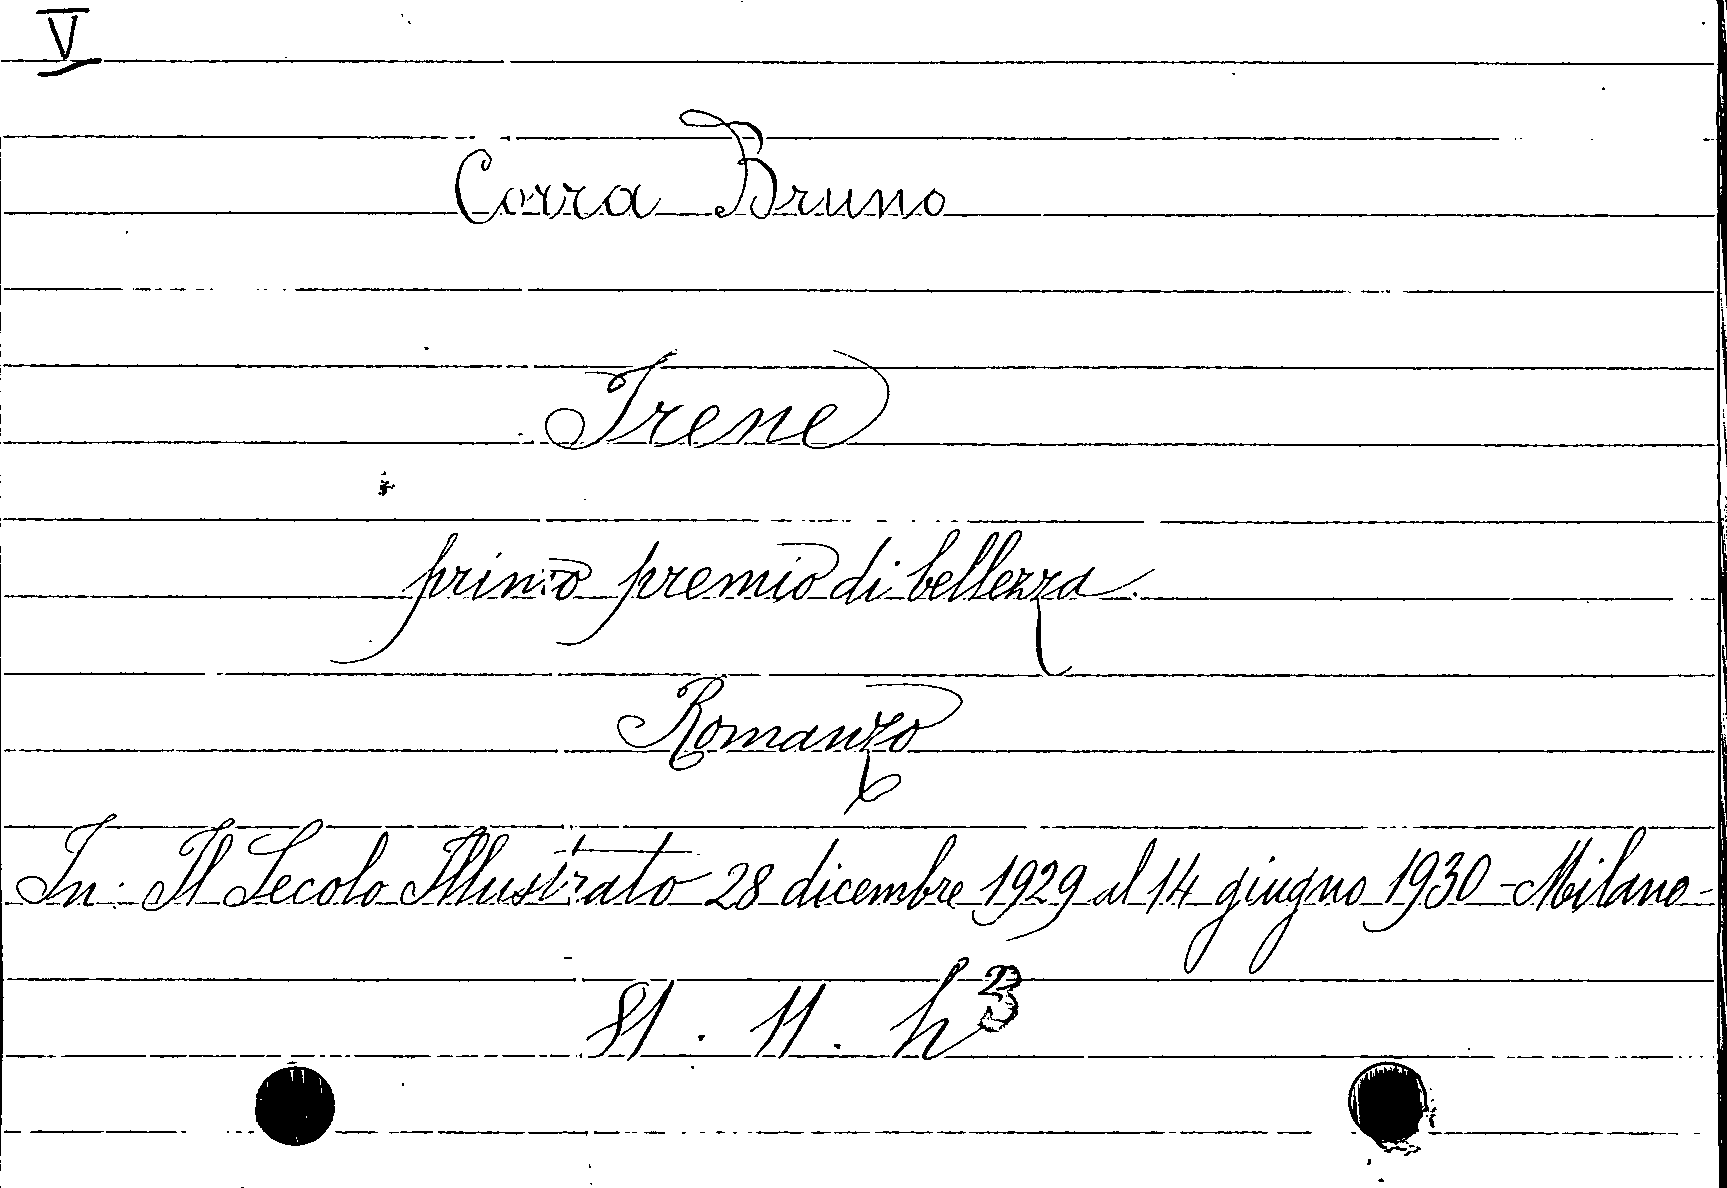 V
Corra Bruno
Irene
primo premio di bellezza.
Romanzo
In: Il Secolo Illustrato 28 dicembre 1929 al 14 giugno 1930 - Milano -
81. 11. h 3